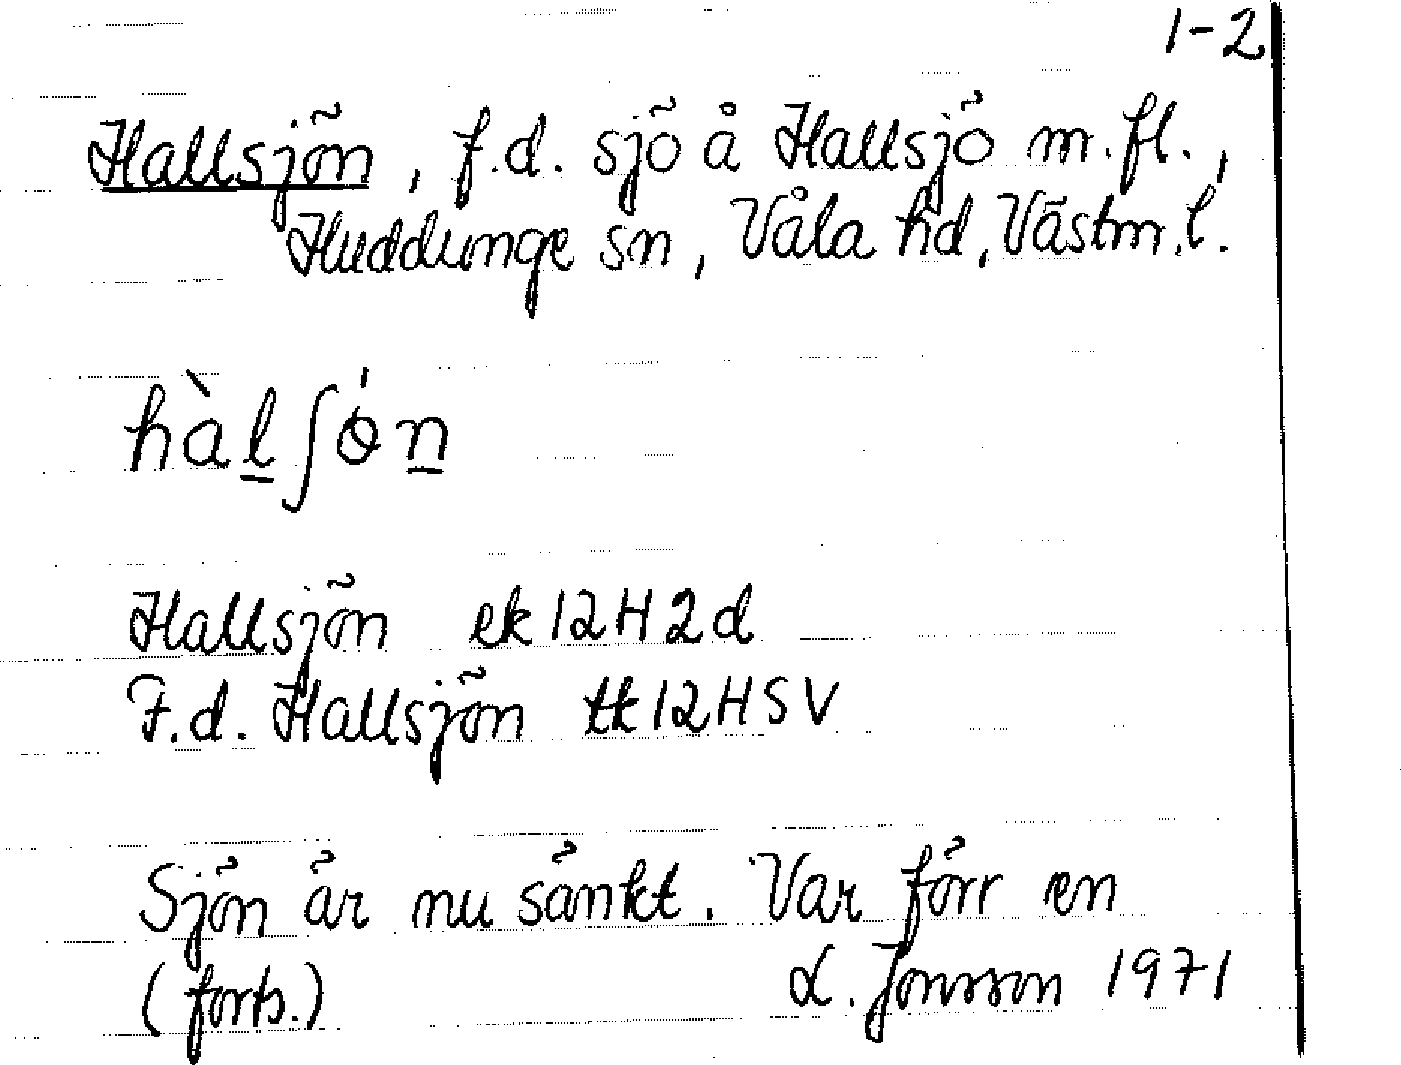 1-2
Hallsjön, f.d. sjö å Hallsjö m.fl.,
Huddunge sn, Våla hd, Västm.l.
hàl̲ʃɵ́n̲
Hallsjön ek 12H2d
F.d. Hallsjön tk 12HSV
Sjön är nu sänkt. Var förr en
(forts.) L. Jonsson 1971